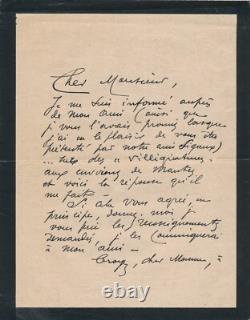 Cher Monsieur,
Je me suis informé auprès
de mon ami (ainsi que
je vous l'avais promis lorsque
j'ai eu le plaisir de vous être
présenté par notre ami Signac)
des "villégiatures"
aux environs de Mantes
et voici la réponse qu'il
me fait -
Si cela vous agrée, en
principe, donnez moi, je
vous prie les renseignements
demandés, je les communiquerai
à mon ami -
Croyez, cher Monsieur, à
ebay